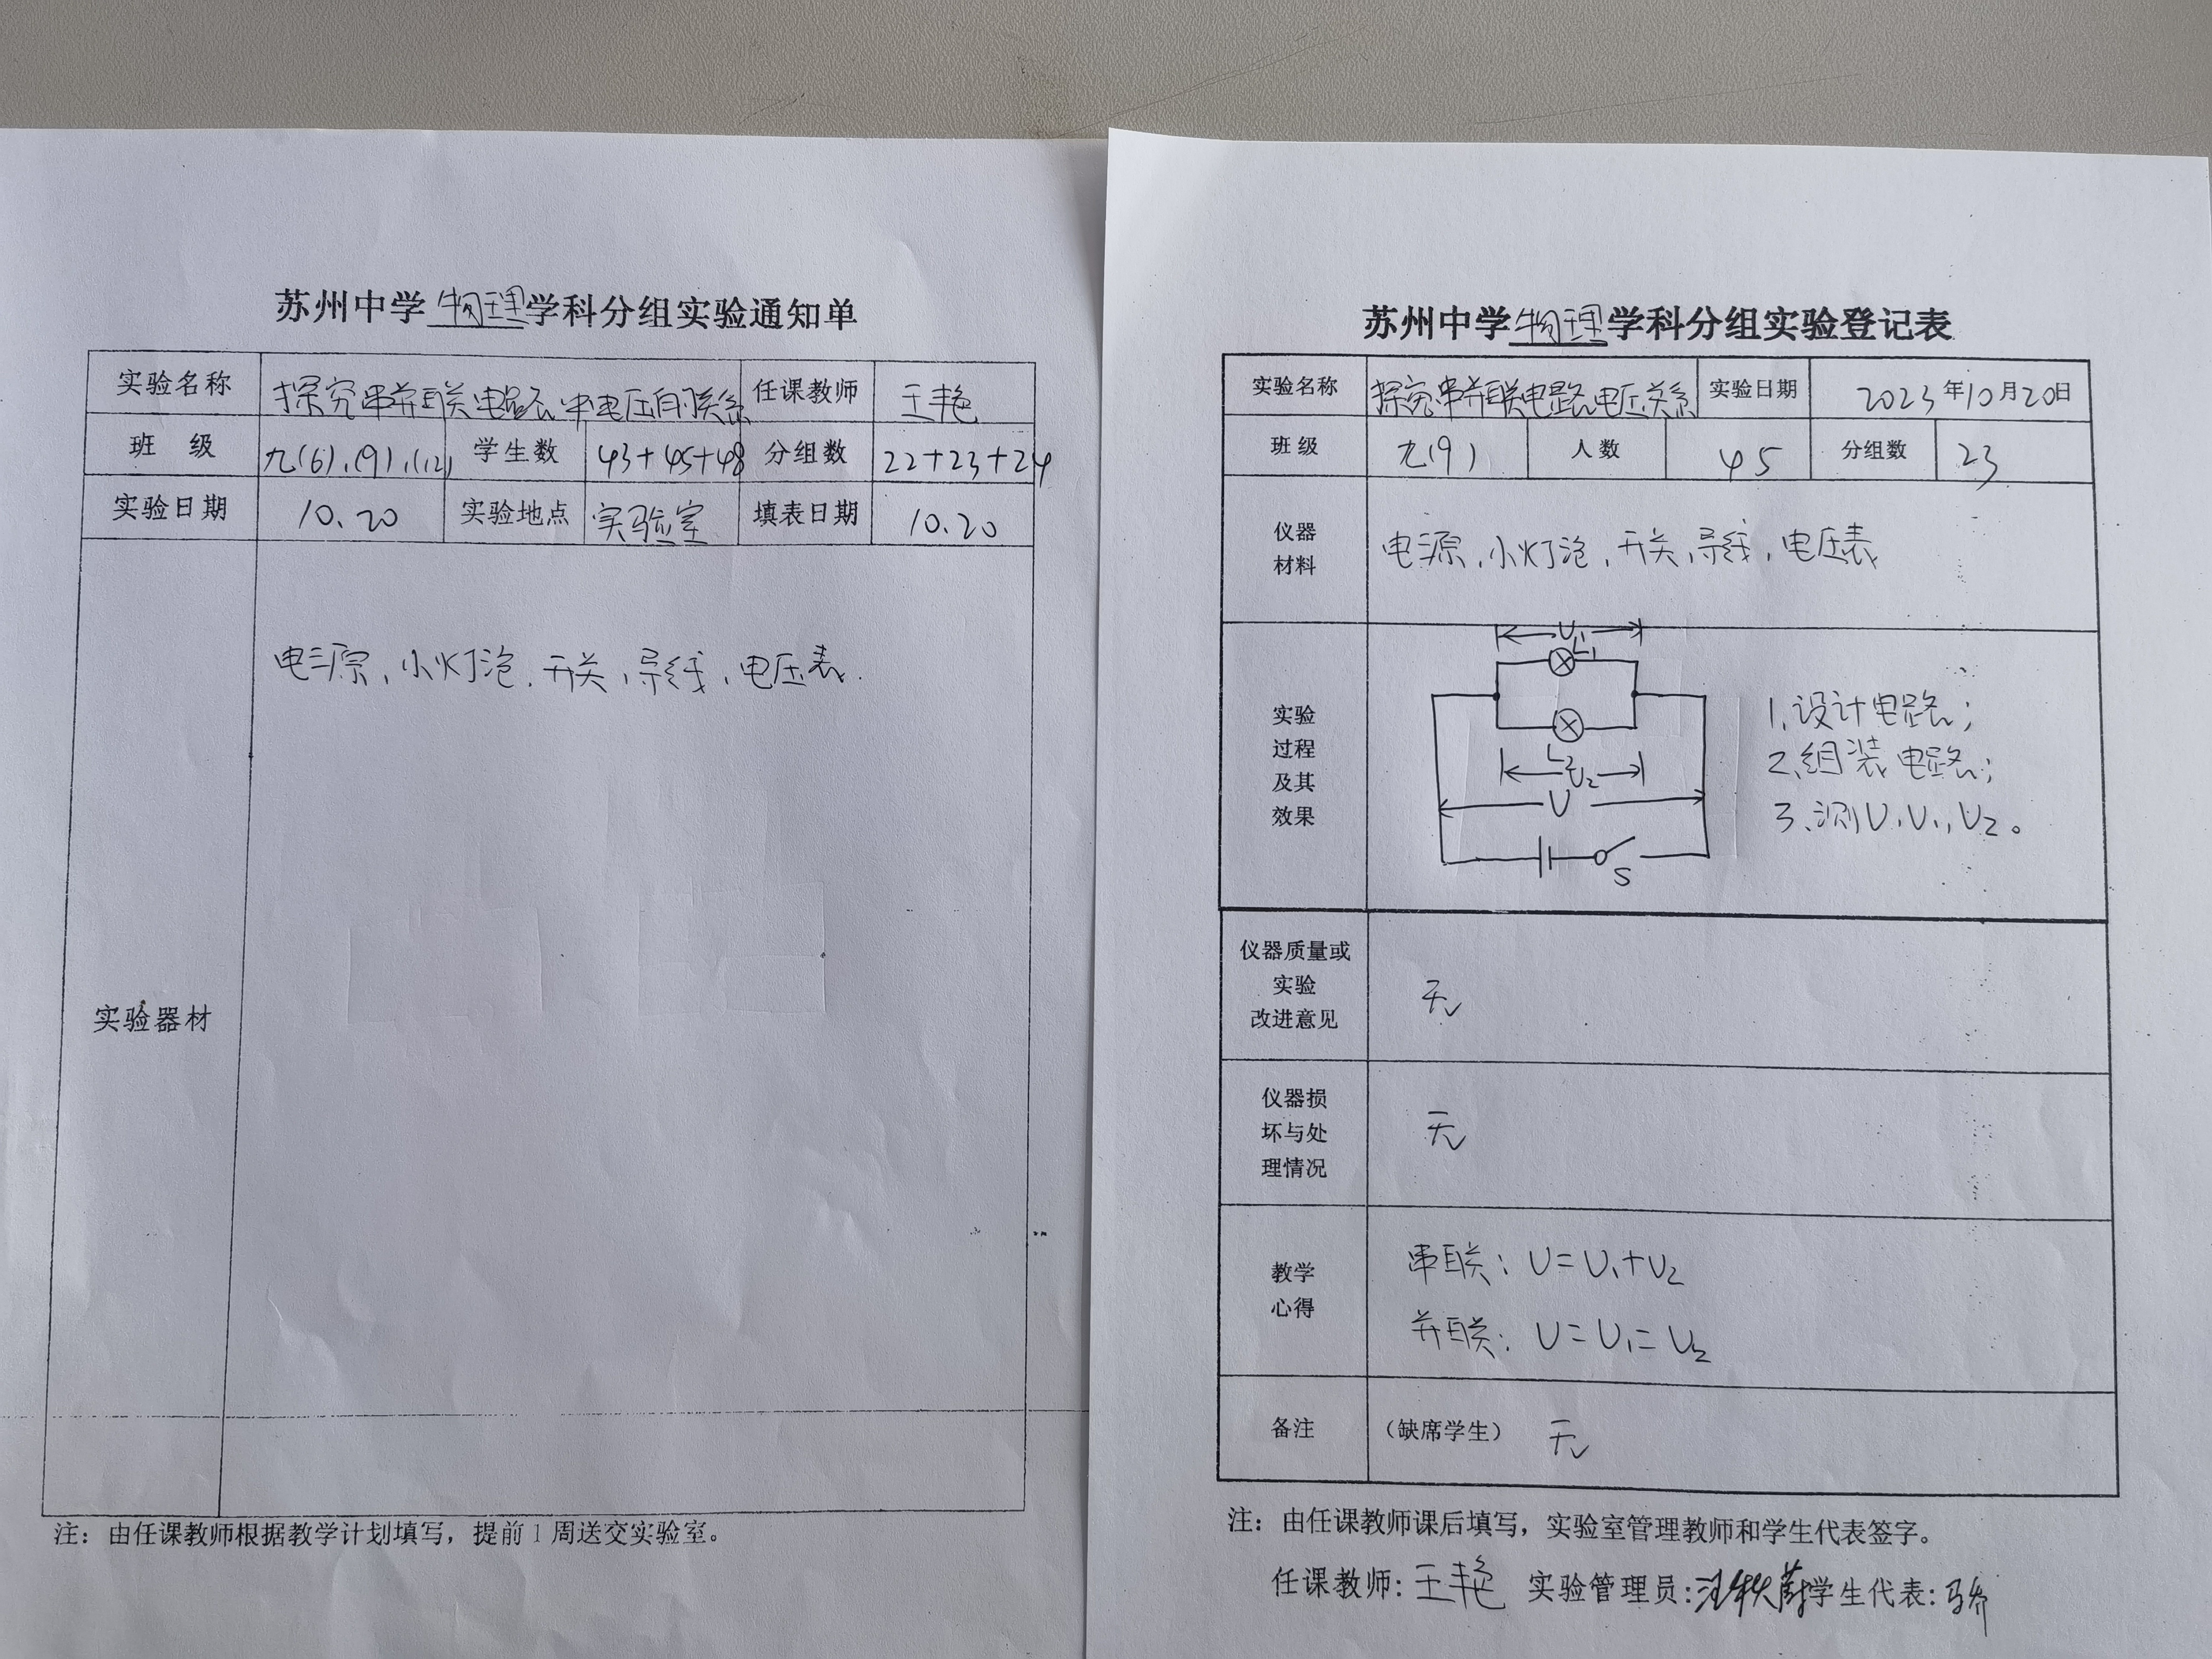 苏州中学物理学科分组实验通知单
实验名称 探究串并联电路中电压的关系 任课教师 王艳
班 级 九(6)、(9)、(12) 学生数 43+45+48 分组数 22+23+24
实验日期 10.20 实验地点 实验室 填表日期 10.20
实验器材
电源、小灯泡、开关、导线、电压表.
注：由任课教师根据教学计划填写，提前1周送交实验室。
苏州中学物理学科分组实验登记表
实验名称 探究串并联电路电压关系 实验日期 2023年10月20日
班级 九(9) 人数 45 分组数 23
仪器
材料
电源、小灯泡、开关、导线、电压表
实验
过程
及其
效果
U₁
L₁
L₂
U₂
U
S
1、设计电路；
2、组装电路；
3、测U、U₁、U₂。
仪器质量或
实验
改进意见
无
仪器损
坏与处
理情况
无
教学
心得
串联：U=U₁+U₂
并联：U=U₁=U₂
备注 （缺席学生） 无
注：由任课教师课后填写，实验室管理教师和学生代表签字。
任课教师：王艳 实验管理员： 学生代表：